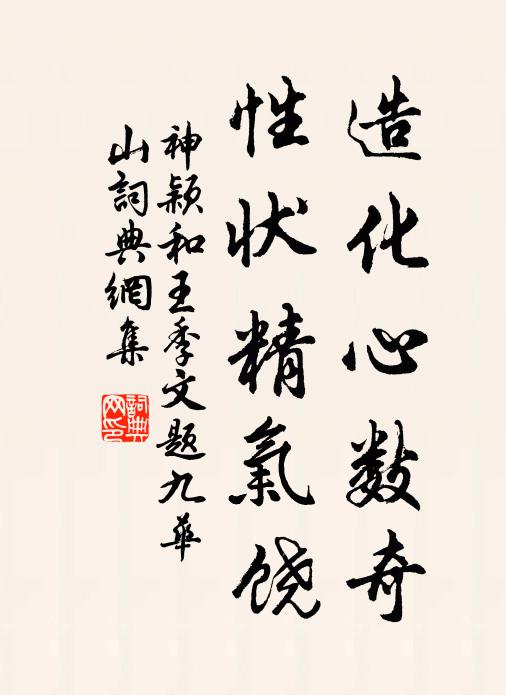 造化心数奇
性状精氣饶
神颖和王季文題九華
山詞典網集
詞典
网印